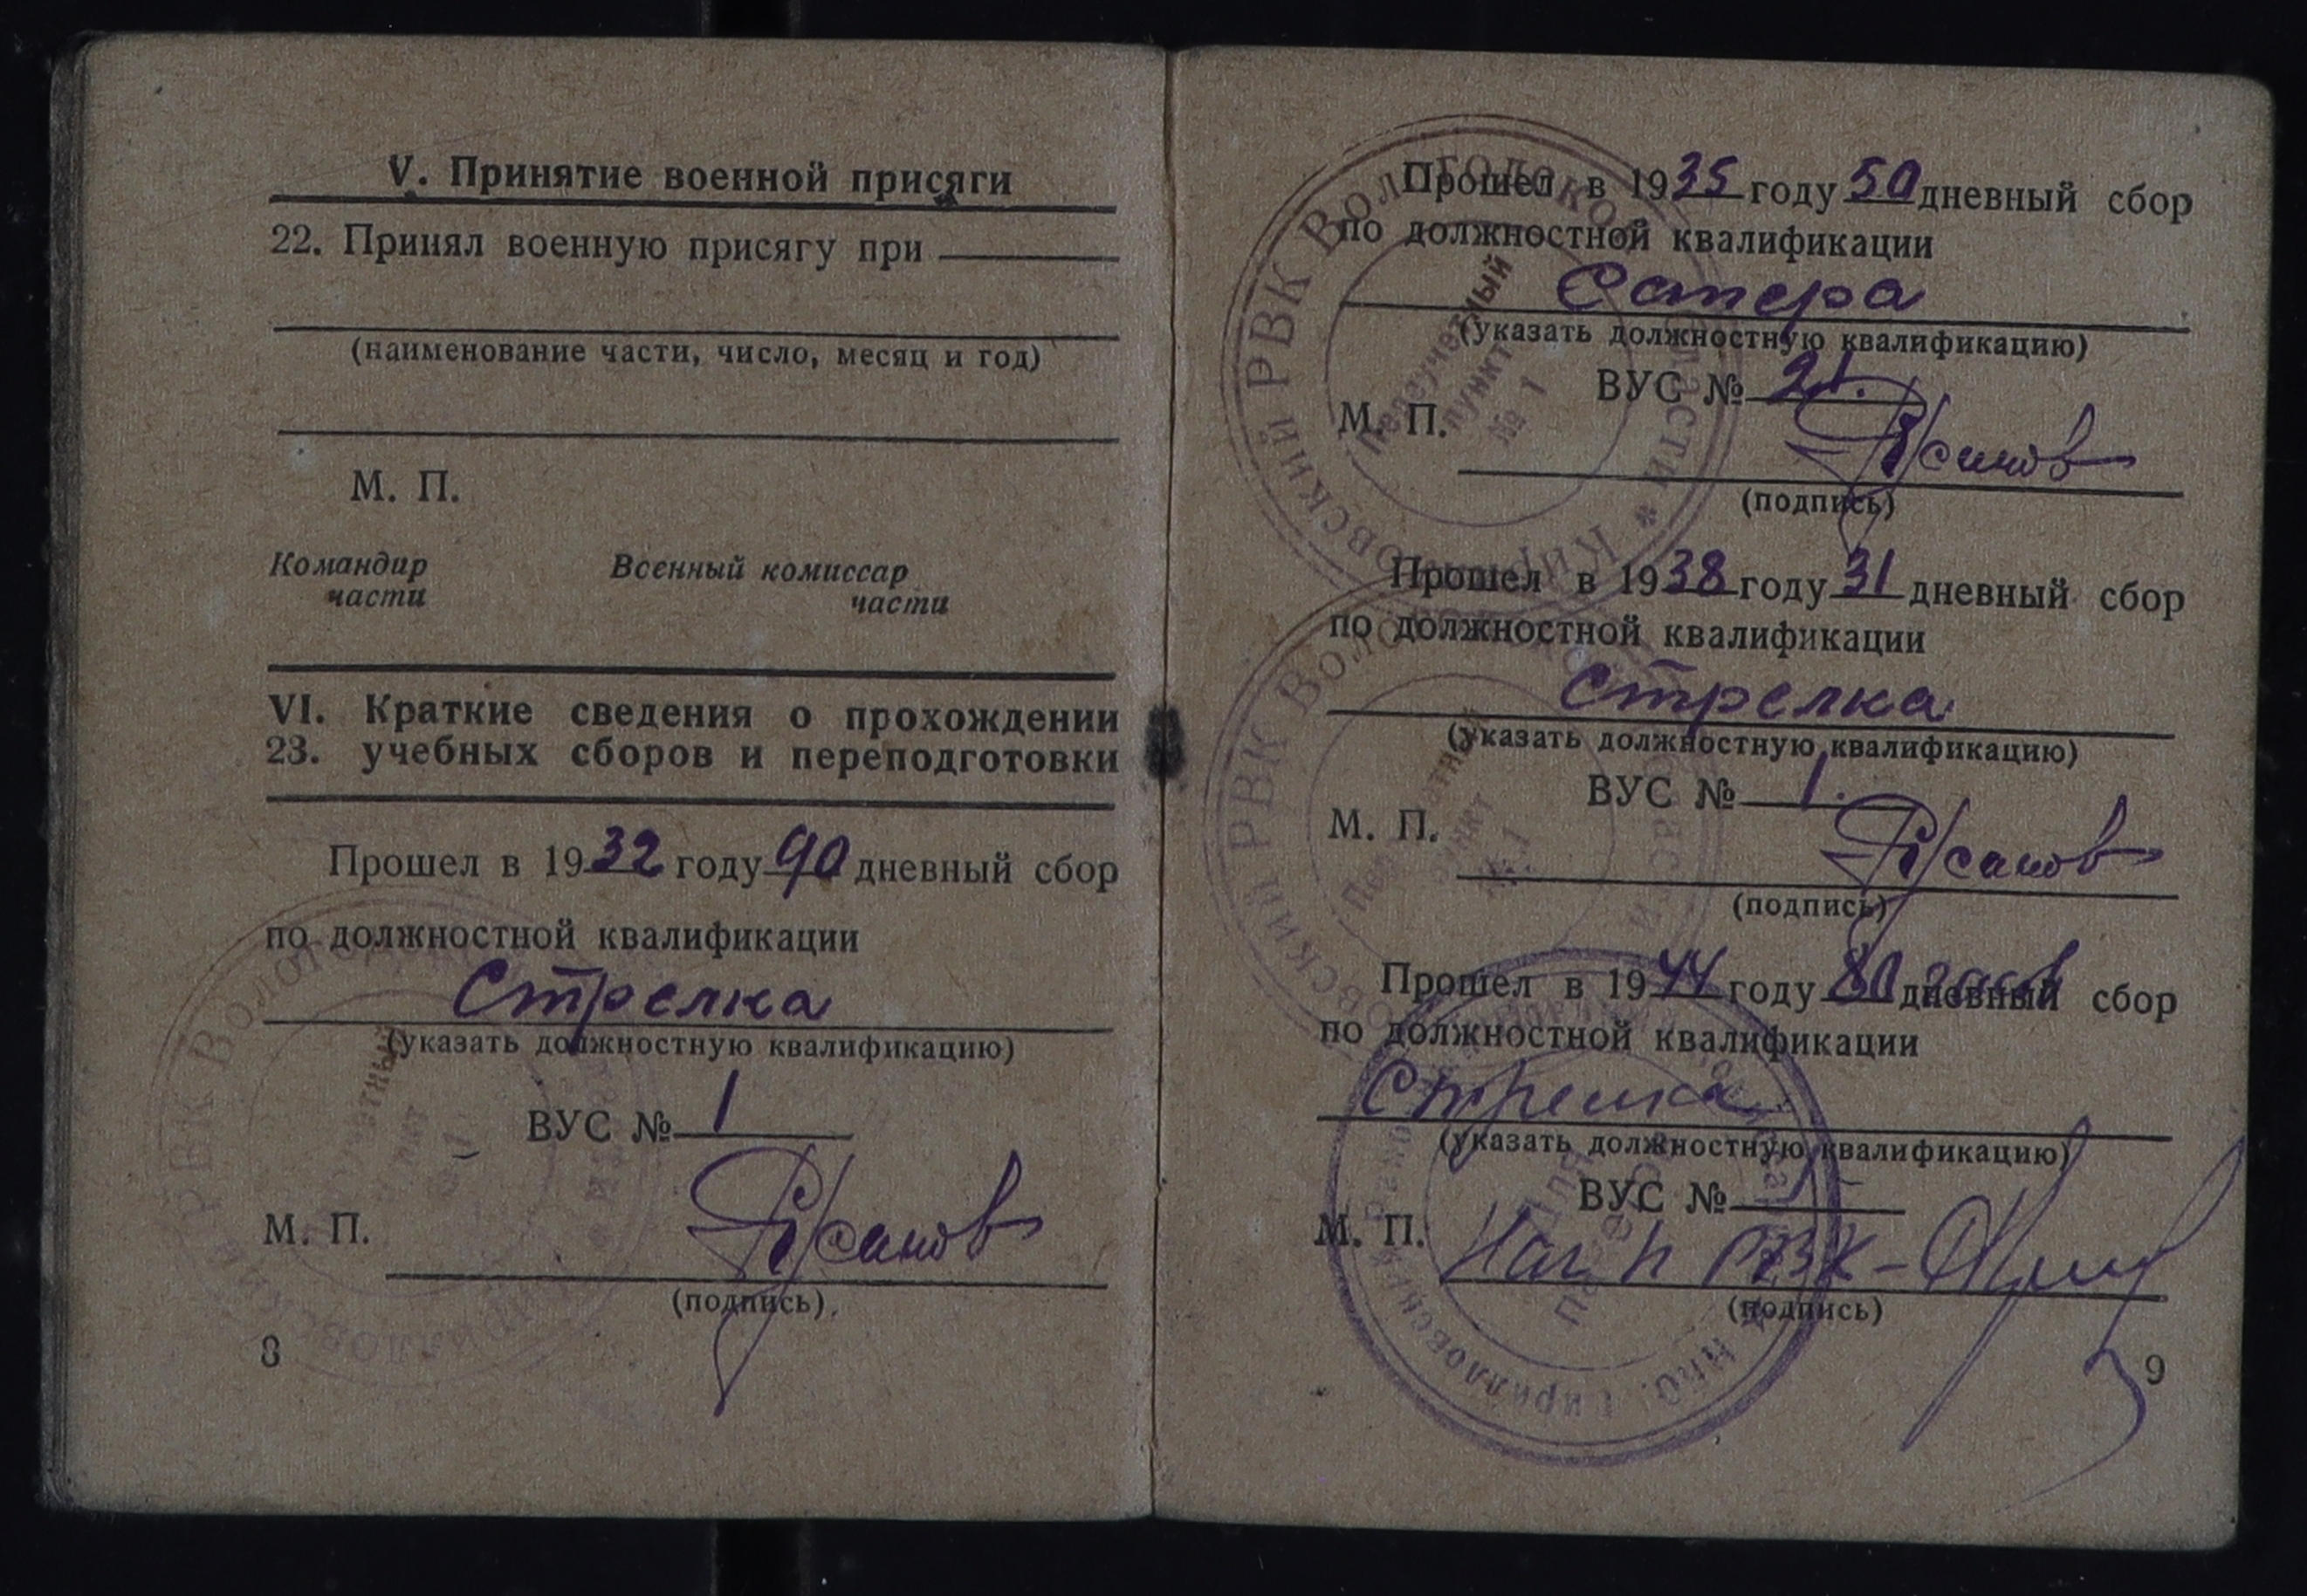 V. Принятие военной присяги
22. Принял военную присягу при
(наименование части, число, месяц и год)
М. П.
Командир части
Военный комиссар части
VI. Краткие сведения о прохождении
23. учебных сборов и переподготовки
Прошел в 1932 году 90 дневный сбор
по должностной квалификации
Стрелка
(указать должностную квалификацию)
ВУС № 1
М. П.
(подпись)
8
Прошел в 1935 году 50 дневный сбор
по должностной квалификации
Сапера
(указать должностную квалификацию)
ВУС № 21.
М. П.
(подпись)
Прошел в 1938 году 31 дневный сбор
по должностной квалификации
Стрелка
(указать должностную квалификацию)
ВУС № 1.
М. П.
(подпись)
Прошел в 1944 году 80 часов дневный сбор
по должностной квалификации
Стрелка
(указать должностную квалификацию)
ВУС № 1
М. П.
(подпись)
9
Кирилловский РВК Вологодской области *
Переучетный
пункт
№ 1